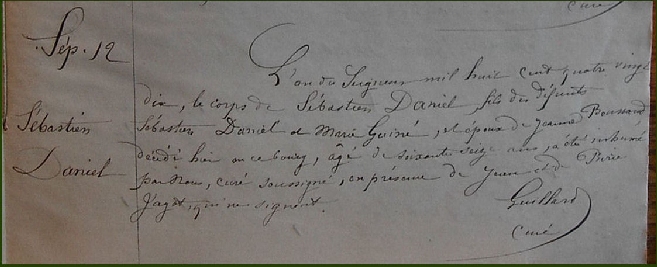 Sép. 12
Sébastien
Daniel
L'an du Seigneur mil huit cent quatre vingt
dix, le corps de Sébastien Daniel fils des défunts
Sébastien Daniel et Marie Guiné, et époux de Jeanne
décédé hier en ce bourg, âgé de soixante seize ans, a été inhumé
par nous, curé soussigné, en présence de Jean et de
qui ne signent.
Guillard
curé
curé